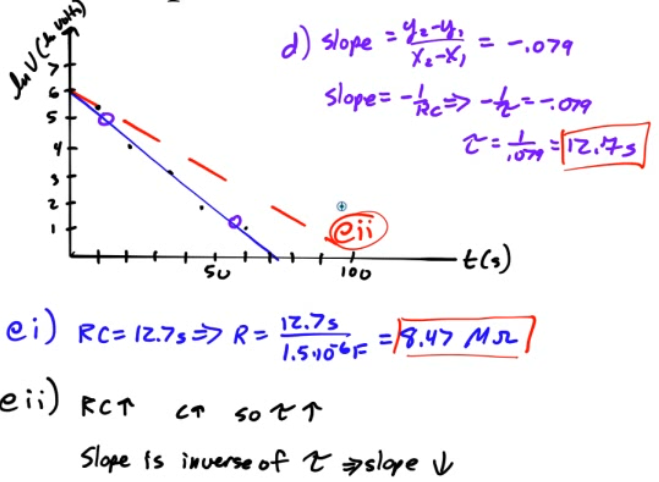 ln V (ln volts)
7
6
5
4
3
2
1
50
100
t(s)
eii
d) slope = y₂-y₁/x₂-x₁ = -.079
slope = -1/RC ⇒ -1/τ = -.079
τ = 1/.079 = 12.7s
ei) RC = 12.7s ⇒ R = 12.7s/1.5x10⁻⁶F = 8.47 MΩ
eii) RC↑ C↑ so τ↑
Slope is inverse of τ ⇒ slope ↓